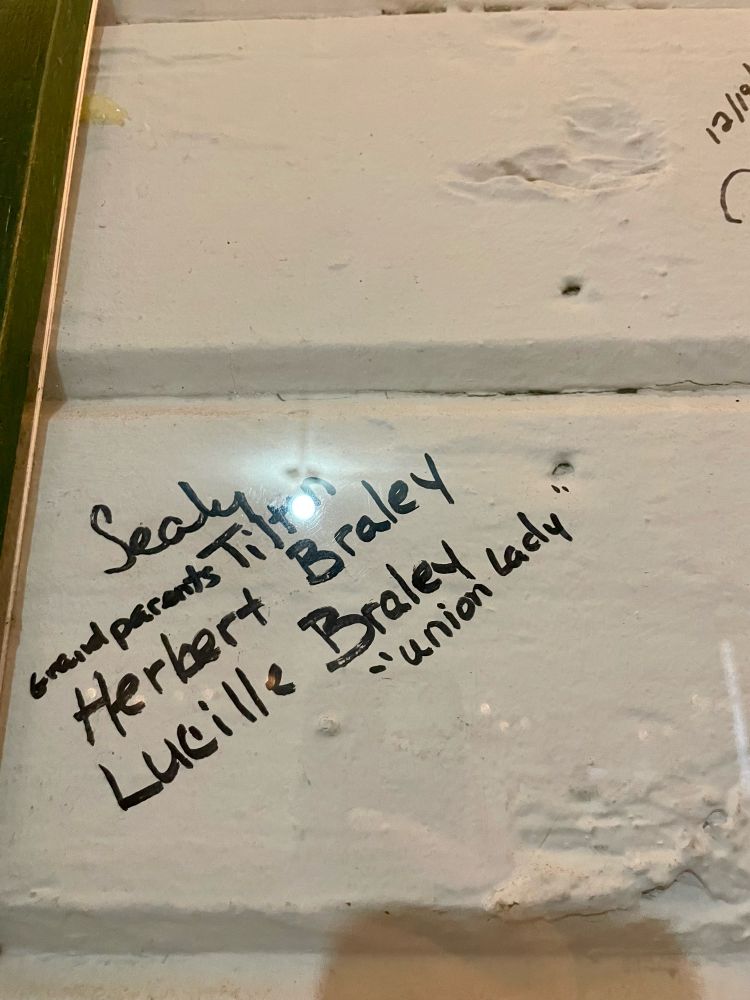 Sealy Tilton
Grandparents
Herbert Braley
Lucille Braley
"union Lady"
12/19/